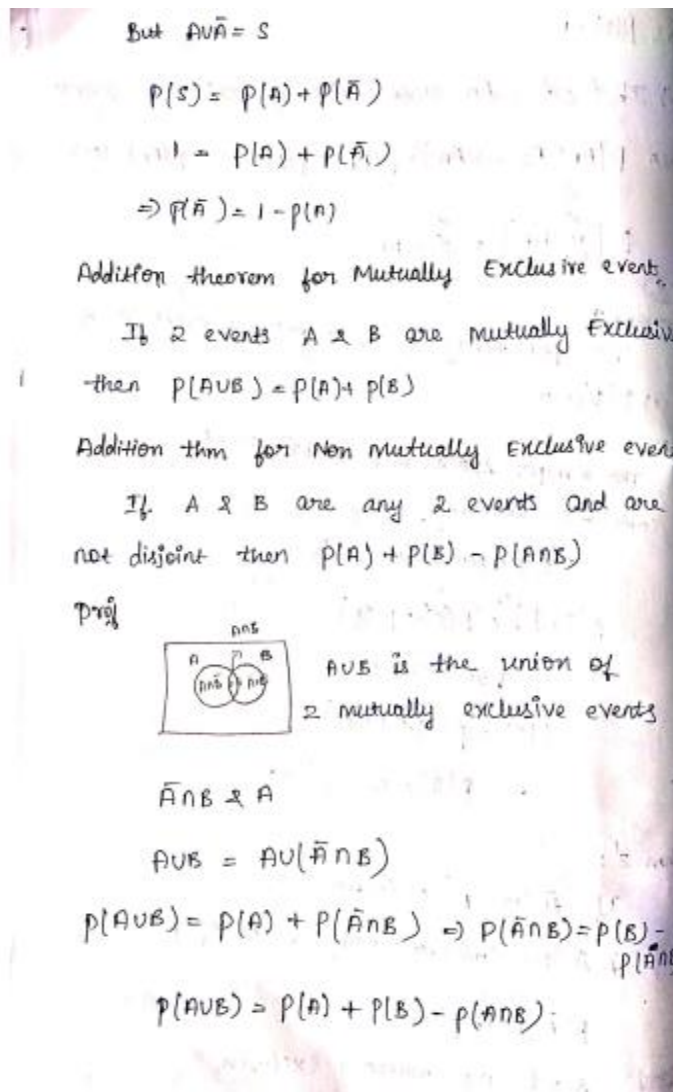 But A∪Ā = S
P(S) = P(A) + P(Ā)
1 = P(A) + P(Ā)
⇒ P(Ā) = 1 - P(A)
Addition theorem for Mutually Exclusive event
If 2 events A & B are mutually Exclusiv
then P(A∪B) = P(A) + P(B)
Addition thm for Non mutually Exclusive even
If A & B are any 2 events and are
not disjoint then P(A) + P(B) - P(A∩B)
Prof
A∩B
A B
A∩B̄ Ā∩B
A∪B is the union of
2 mutually exclusive events
Ā∩B & A
A∪B = A∪(Ā∩B)
P(A∪B) = P(A) + P(Ā∩B) ⇒ P(Ā∩B) = P(B) -
P(A∩B
P(A∪B) = P(A) + P(B) - P(A∩B)